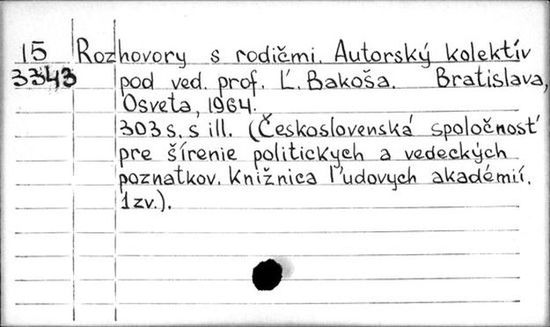 15 Rozhovory s rodičmi. Autorský kolektív
3343 pod ved. prof. Ľ. Bakoša. Bratislava,
Osveta, 1964.
303 s. s ill. (Československá spoločnosť
pre šírenie politických a vedeckých
poznatkov. Knižnica ľudových akadémií.
1zv.).